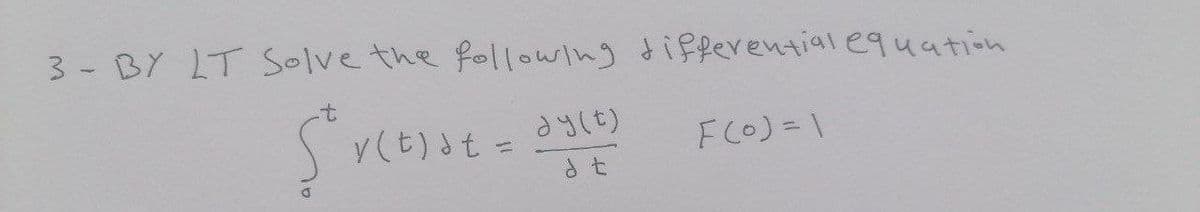 3 - BY LT Solve the following differential equation
∫₀ᵗ y(t) dt = dy(t)/dt F(0) = 1